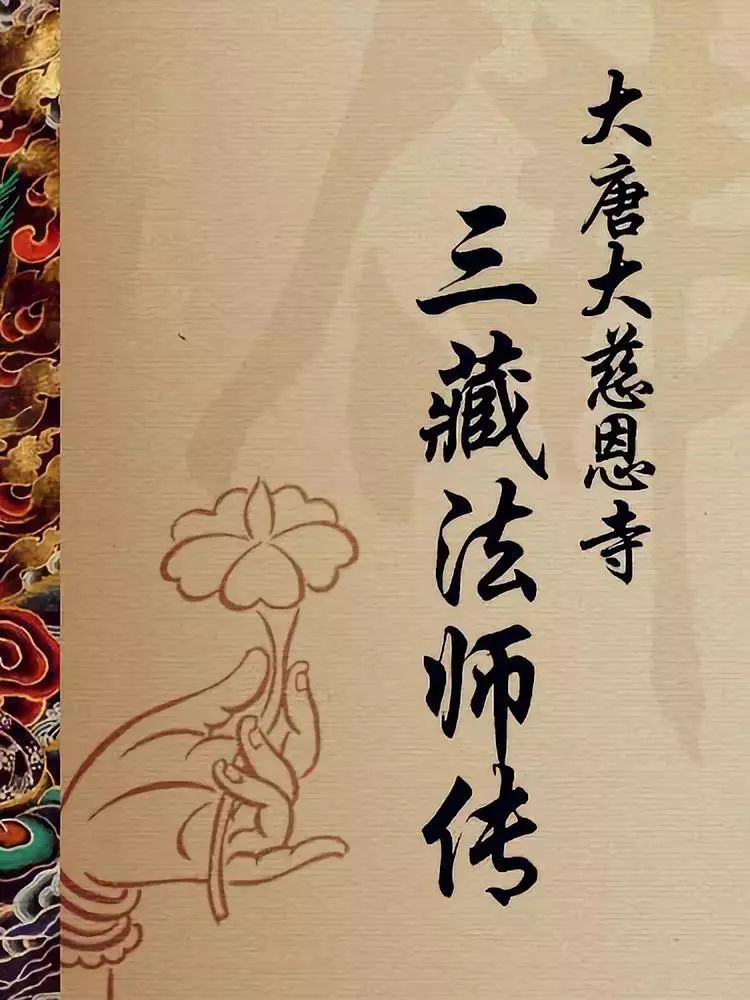 大唐大慈恩寺
三藏法师传